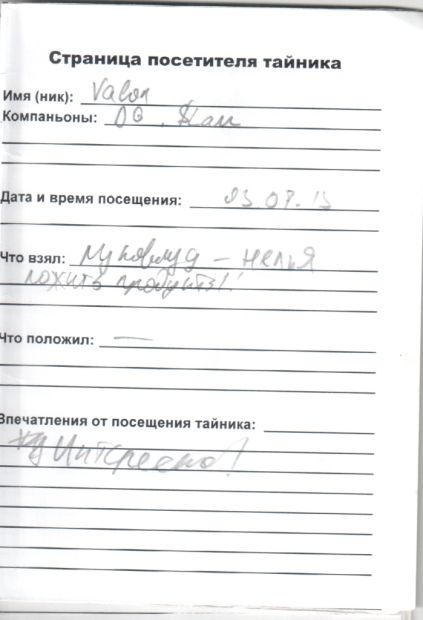 Страница посетителя тайника
Имя (ник): Valon
Компаньоны:
Дата и время посещения:
Что взял: – нелья
ложить продукты!!
Что положил: —
Впечатления от посещения тайника:
Интересно!